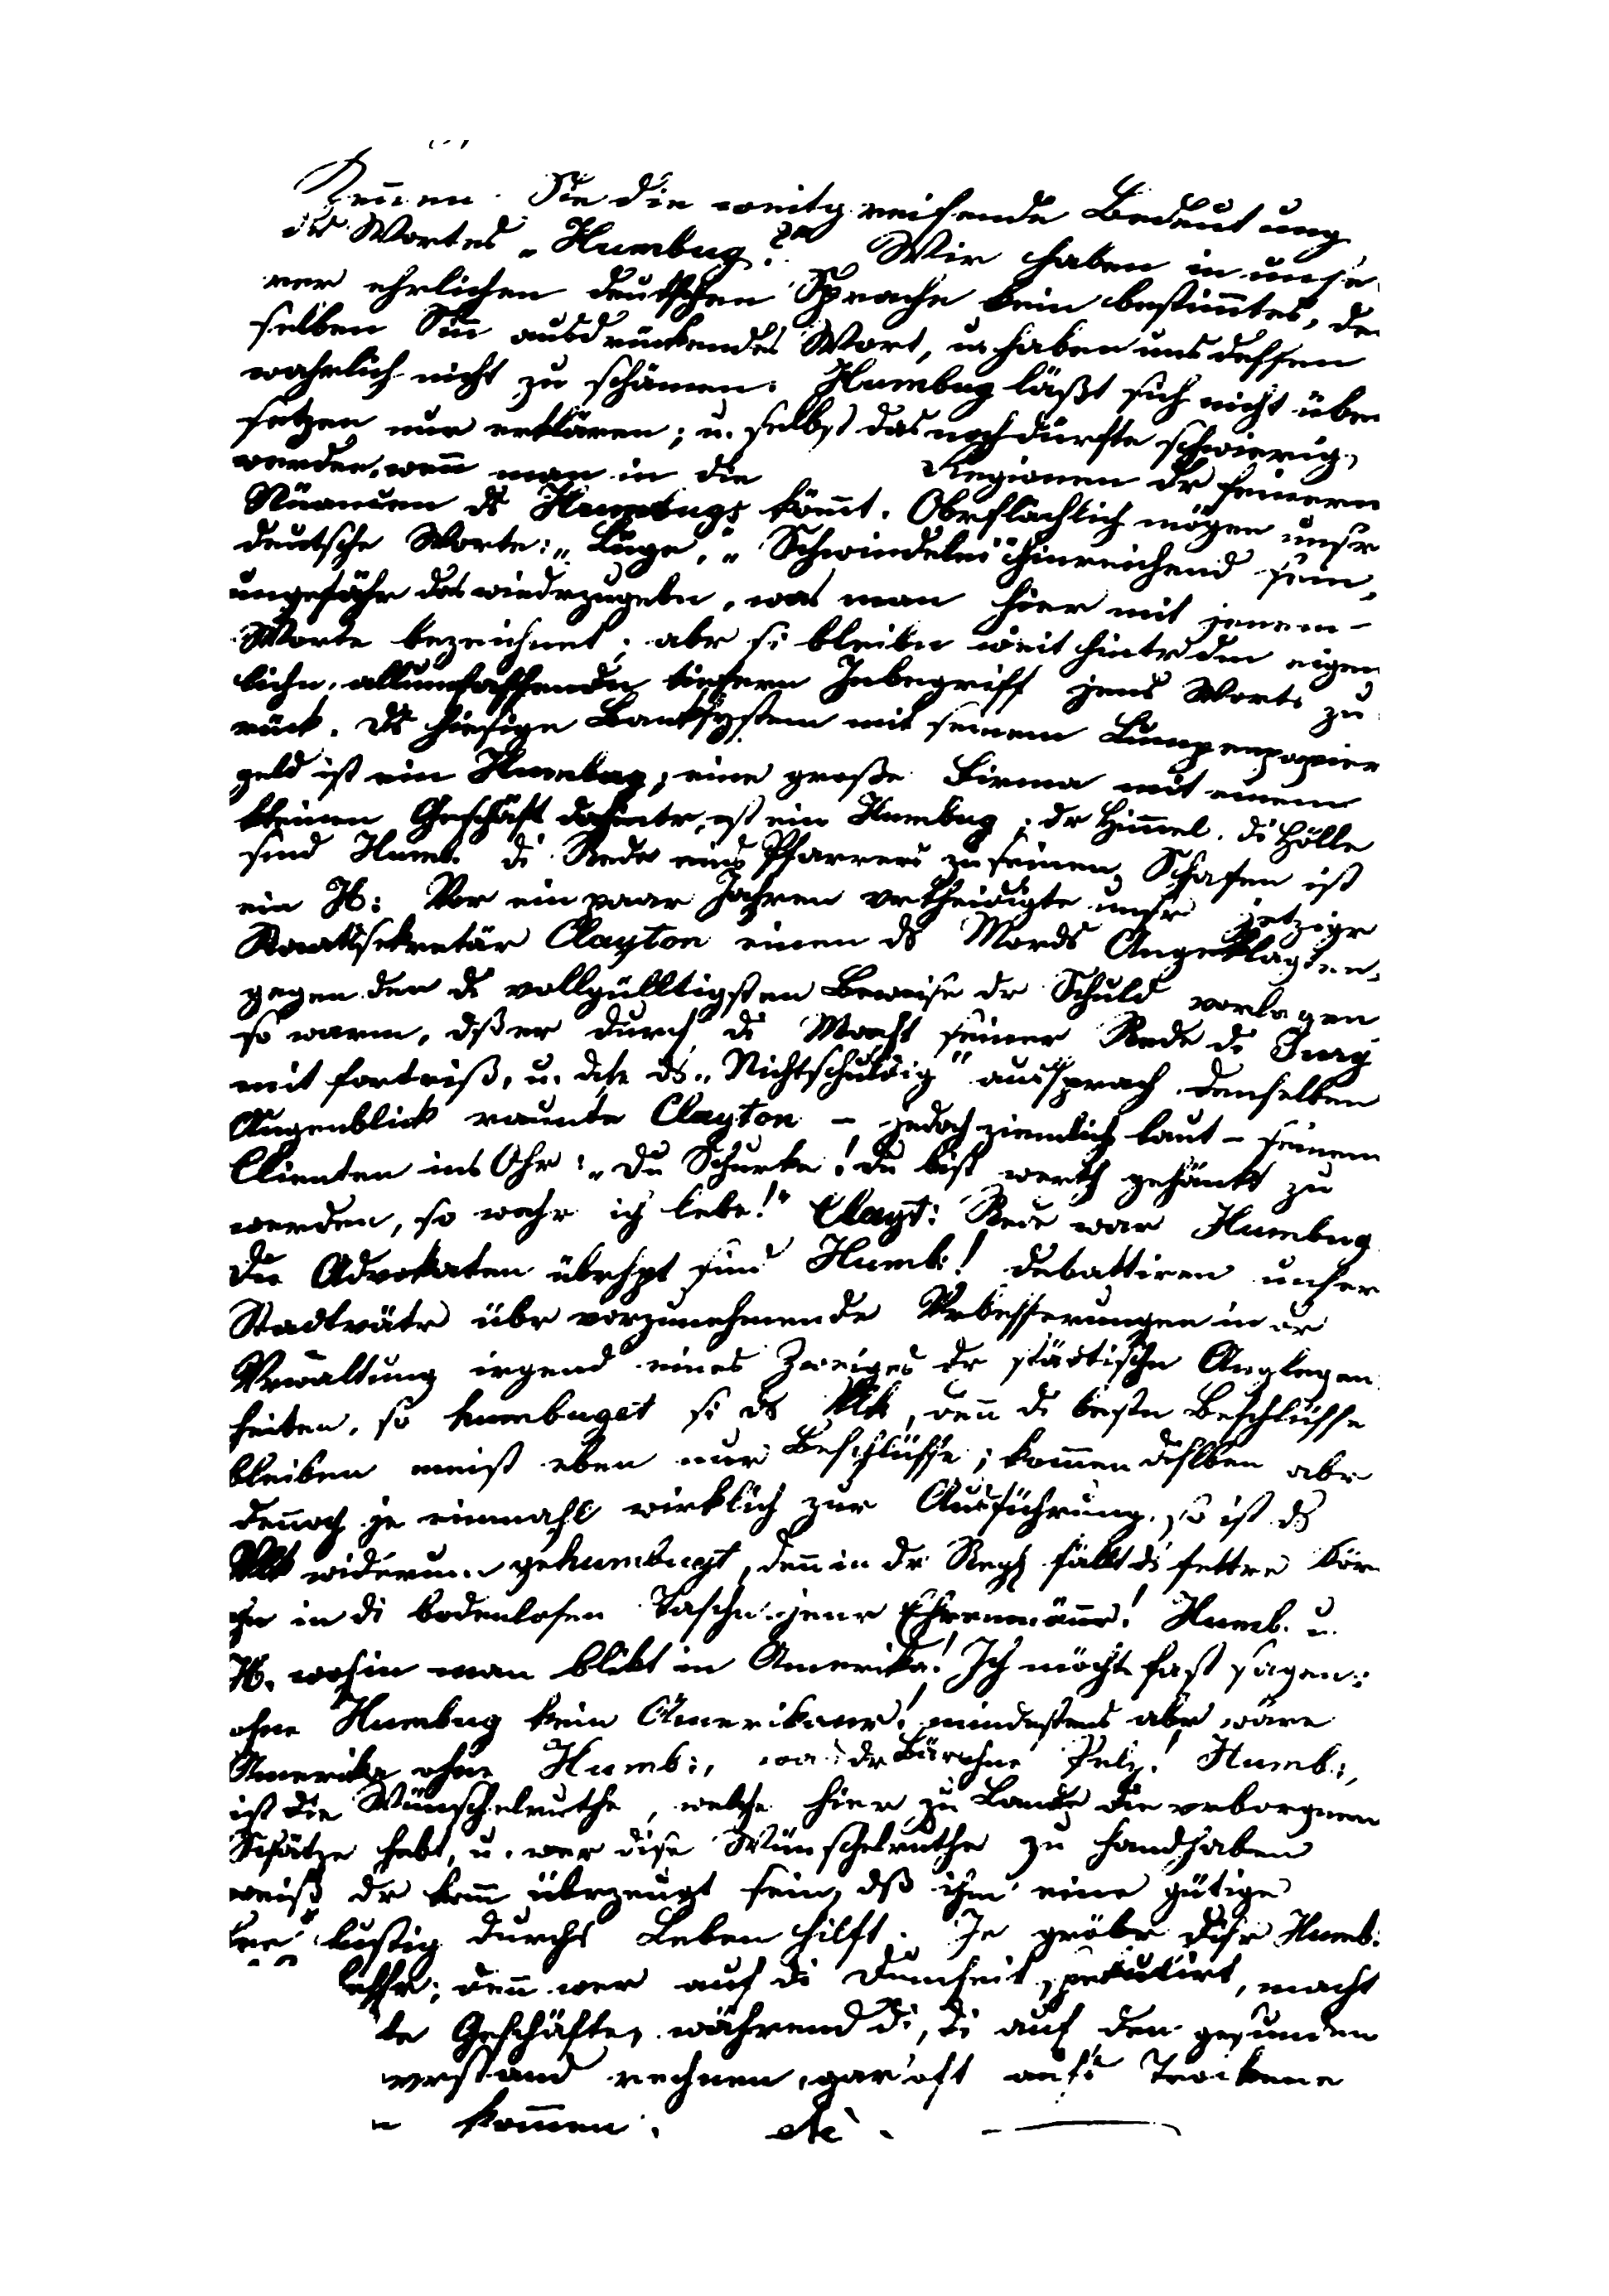 Kennen Sie die weitgreifende Bedeutung
des Wortes „Humbug?" Wir haben in unse
rer ehrlichen deutschen Sprache kein bestim̄tes, den
selben Sin̄ ausdrückendes Wort, u. haben uns dessen
wahrlich nicht zu schämen. Humbug läßt sich nicht über
setzen nur erklären; u. selbst das noch dürfte schwierig
werden, wen̄ man in die Regionen dr feinern
Nüancen ds Humbugs köm̄t. Obrflächlich mögen unsr
deutsche Worte: „Lüge," „Schwindelei" hinreichend sein,
ungefähr das wiedrzugebn, was man hier mit jenem
Worte bezeichnet; abr si bleibn weit hintr dem eigen
lichn, allumfassenden tiefern Inbegriff jens Worts zu
rück. Ds hiesige Banksystem mit seinem Lumpenpapier
geld ist ein Humbug; eine große Firma mit einem
kleinen Geschäft dahintr, ist ein Humbug; dr Him̄el, di Hölle
sind Humb. di Rede eines Pfarrers zu seinen Schafen ist
ein H: Vor ein paar Jahren vrtheidigte unsr jetzigr
Staatssekretär Clayton einen ds Mords Angeklagten,
gegen den di vollgülltigsten Beweise dr Schuld vorlagen
so warm, dß er durch di Macht seiner Rede di Jury
mit fortriß, u. dise ds „Nichtschuldig" aussprach. Denselben
Augenblick raunte Clayton – jedoch ziemlich laut – seinem
Clienten ins Ohr: „Du Schurke! du bist werth gehänkt zu
werden, so wahr ich lebe!" Clayt: Rede war Humbug
Die Advokaten übrhpt sind Humb:! debattiren unser
Stadtvätr übr vorzunehmende Vrbesserungen in dr
Vrwaltung irgend eines Zweiges dr städtischn Anglegen
heiten, so humbuget si ds Vlk, den̄ di bestn Beschlüsse
bleiben meist eben nur Beschlüsse; kom̄en diselben abr
den̄och je einmahl wirklich zur Ausführung, so ist ds
Vlk widerum gehumbugt, den̄ in dr Regl fällt di fettre Kör
in di bodenlosen Taschn jenr Ehrenmän̄r! Humb. u.
H. wohin man blikt in Amerika! Ich möcht fast sagen:
ohne Humbug kein Amerikaner! mindestens abr wäre
Amerika ohne Humb:, dr Bär ohne Pelz! Humb:,
ist die Wünschelruthe, welche hier zu Lande die vrborgnen
Schätze hebt, u. wer dise Wünschelruthe zu handhaben
weiß dr kan̄ übrzeugt sein, dß ihm eine gütige
Fee lustig durchs Leben hilft. Je gröbr disr Humb.
bessr; den̄ wer auf di Dum̄heit spekulirt, macht
te Geschäfte, während di, di auf den gesunden
vrstand rechnen, gar oft aufs Trockene
n kom̄en. etc.